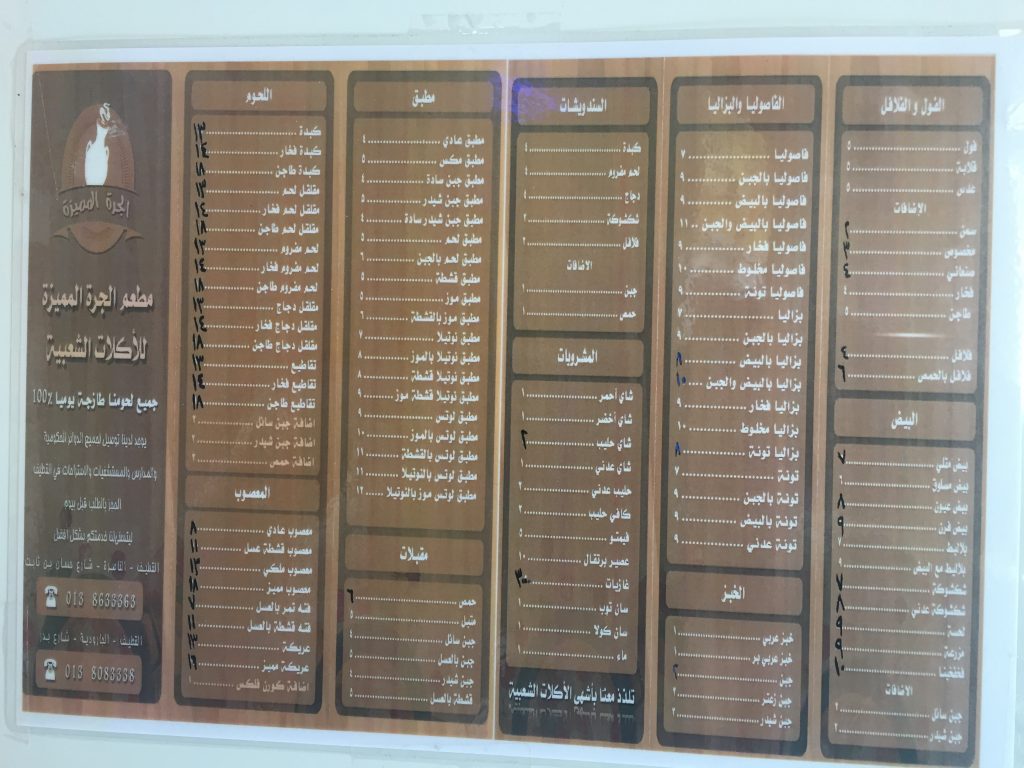 الفول و الفلافل
فول ٥
قلابة ٥
عدس ٥
الاضافات
سمن
مخصوص
صنعاني
فخار ٤
طاجن ٥
فلافل
فلافل بالحمص
البيض
بيض مقلي
بيض مسلوق ٦
بيض عيون
بيض فرن
بلاليط ٧
بلاليط مع البيض ٩
شكشوكة
شكشوكة عدني
لحسة
مزرعة
الاضافات
جبن سائل ٢
جبن شيدر ٢
الفاصوليا والبزاليا
فاصوليا ٧
فاصوليا بالجبن ٩
فاصوليا بالبيض ٩
فاصوليا بالبيض والجبن ١١
فاصوليا فخار ٩
فاصوليا مخلوط ١٠
فاصوليا تونة ٩
بزاليا ٧
بزاليا بالجبن ٩
بزاليا بالبيض ٨
بزاليا بالبيض والجبن ١٠
بزاليا فخار ٩
بزاليا مخلوط ١٠
بزاليا تونة ٨
تونة ٧
تونة بالجبن ٩
تونة بالبيض ٩
تونة عدني ٩
الخبز
خبز عربي ١
خبز عربي بر ١
جبن
جبن زعتر ٢
جبن شيدر ٢
السندويشات
كبدة ٤
لحم مفروم ٤
دجاج ٤
شكشوكة ٢
فلافل ٢
الاضافات
جبن ١
حمص ١
المشروبات
شاي احمر ١
شاي أخضر ١
شاي حليب ٢
شاي عدني ١
حليب عدني ٢
كافي حليب ٢
فيمتو ٥
عصير برتقال ١٠
غازيات ٣
سان توب ١
سان كولا ١
ماء ١
تلذذ معنا بأشهى الأكلات الشعبية
مطبق
مطبق عادي ٤
مطبق مكس ٥
مطبق جبن سادة ٤
مطبق جبن شيدر ٥
مطبق جبن شيدر سادة ٤
مطبق لحم ٥
مطبق لحم بالجبن ٦
مطبق قشطة ٥
مطبق موز ٥
مطبق موز بالقشطة ٦
مطبق نوتيلا ٧
مطبق نوتيلا بالموز ٨
مطبق نوتيلا قشطة ٨
مطبق نوتيلا قشطة موز ٩
مطبق لوتس ٩
مطبق لوتس بالموز ١٠
مطبق لوتس بالقشطة ١١
مطبق لوتس بالنوتيلا ١١
مطبق لوتس موز بالنوتيلا ١٢
مقبلات
حمص ٦
متبل ٥
جبن سائل ٤
جبن بالعسل ٥
جبن شيدر ٤
قشطة بالعسل ٥
اللحوم
كبدة
كبدة فخار
كبدة طاجن
مقلقل لحم
مقلقل لحم فخار
مقلقل لحم طاجن
لحم مفروم
لحم مفروم فخار
لحم مفروم طاجن
مقلقل دجاج
مقلقل دجاج فخار
مقلقل دجاج طاجن
تقاطيع
تقاطيع فخار
تقاطيع طاجن
اضافة جبن سائل ٢
اضافة جبن شيدر ٢
اضافة حمص ٢
المعصوب
معصوب عادي
معصوب قشطة عسل
معصوب ملكي
معصوب مميز
فتة تمر بالعسل
فتة قشطة بالعسل
عريكة
عريكة مميز
اضافة كورن فلكس ١
الجرة المميزة
مطعم الجرة المميزة
للأكلات الشعبية
جميع لحومنا طازجة يوميا 100%
يوجد لدينا توصيل لجميع الدوائر الحكومية
والمدارس والمستشفيات والاستراحات في القطيف
القطيف - الناصرة - شارع حسان بن ثابت
013 8633363
القطيف - الجارودية - شارع بدر
013 8083338